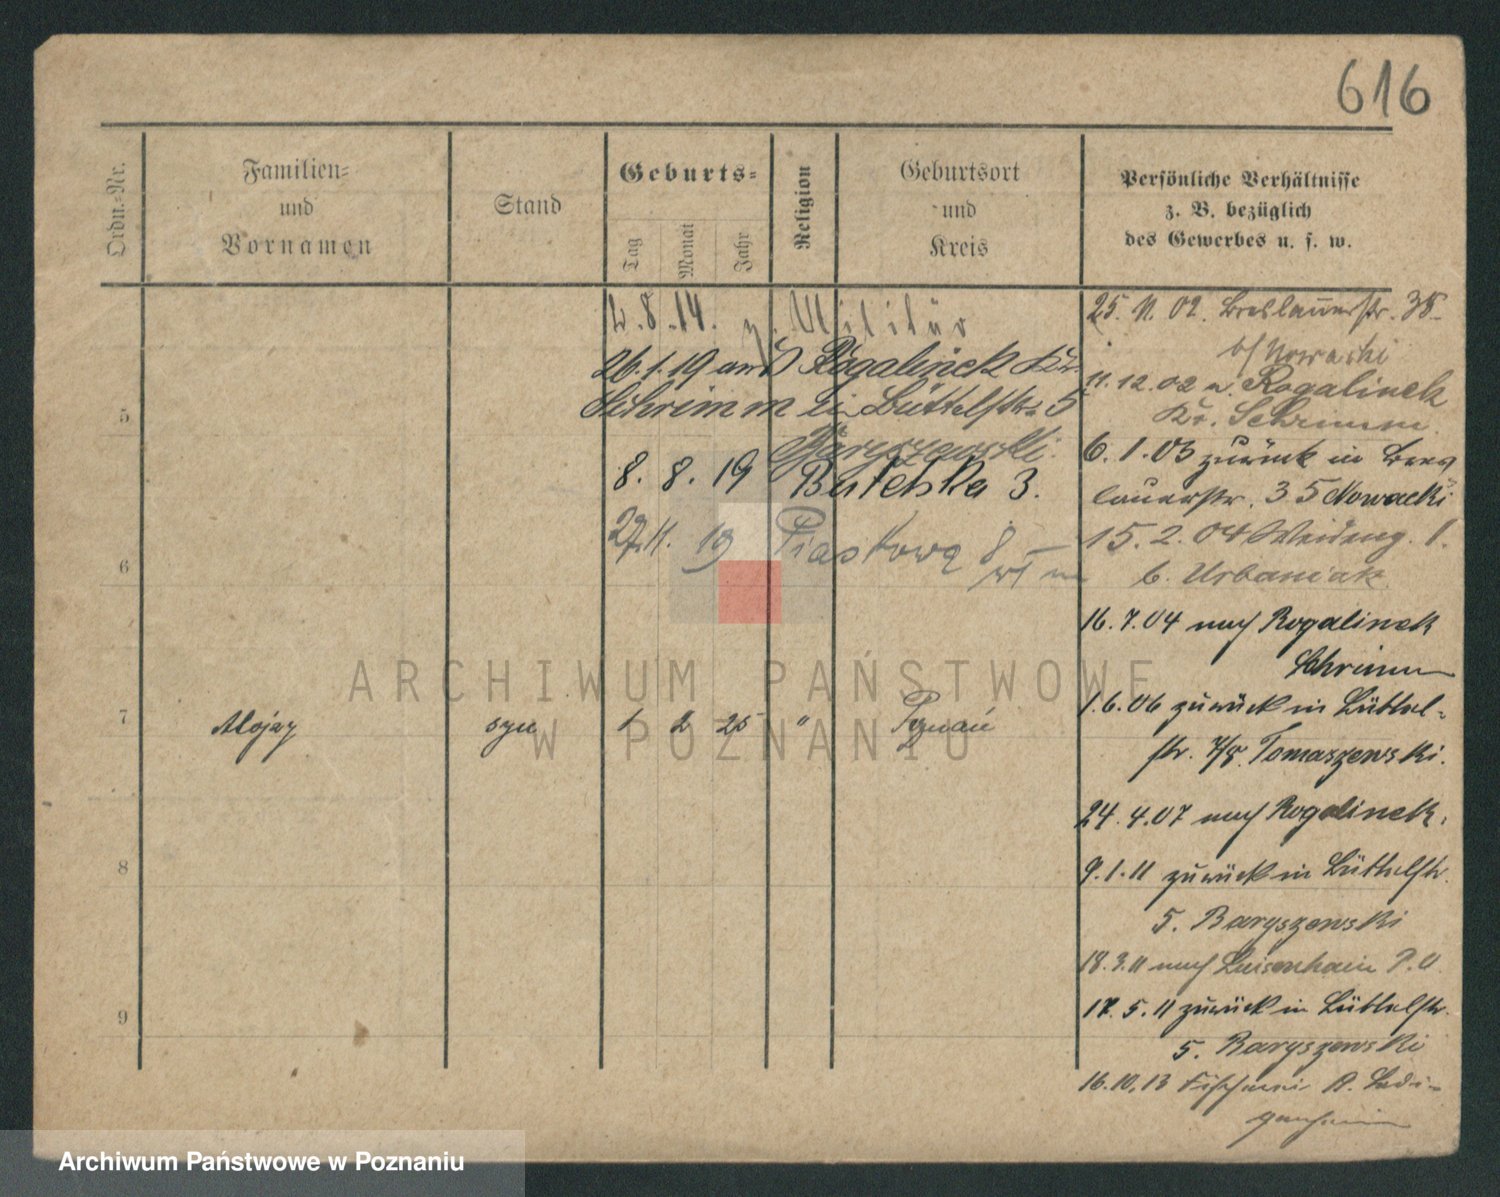 616
Ordn.=Nr.
Familien=
und
Vornamen
Stand
Geburts=
Tag
Monat
Jahr
Religion
Geburtsort
und
Kreis
Persönliche Verhältnisse
z. B. bezüglich
des Gewerbes u. s. w.
2.8.14. z. Militär
26.1.19 aus Rogalinek Kr.
Schrimm in Büttelstr. 5
Baryszewski.
8. 8. 19 Butelska 3.
27.11. 19 Piastowa 8
5
6
7 Alojzy syn 1 2 25 " Poznań
8
9
25. 11. 02. Breslauerstr. 35.
b/ Nowacki
11.12.02 n. Rogalinek
Kr. Schrimm.
6. 1. 03 zurück in Bres
lauerstr. 35 Nowacki
15. 2. 04 Weideng. 1.
b. Urbaniak
16. 7. 04 nach Rogalinek
Schrimm
1.6.06 zurück in Büttel-
str. 7/8. Tomaszewski.
24. 4. 07 nach Rogalinek.
9. 1. 11 zurück in Büttelstr.
5. Baryszewski
18. 3. 11 nach Luisenhain P.O.
17. 5. 11 zurück in Büttelstr.
5. Baryszewski
16. 10. 13 Fischerei
ARCHIWUM PAŃSTWOWE
W POZNANIU
Archiwum Państwowe w Poznaniu